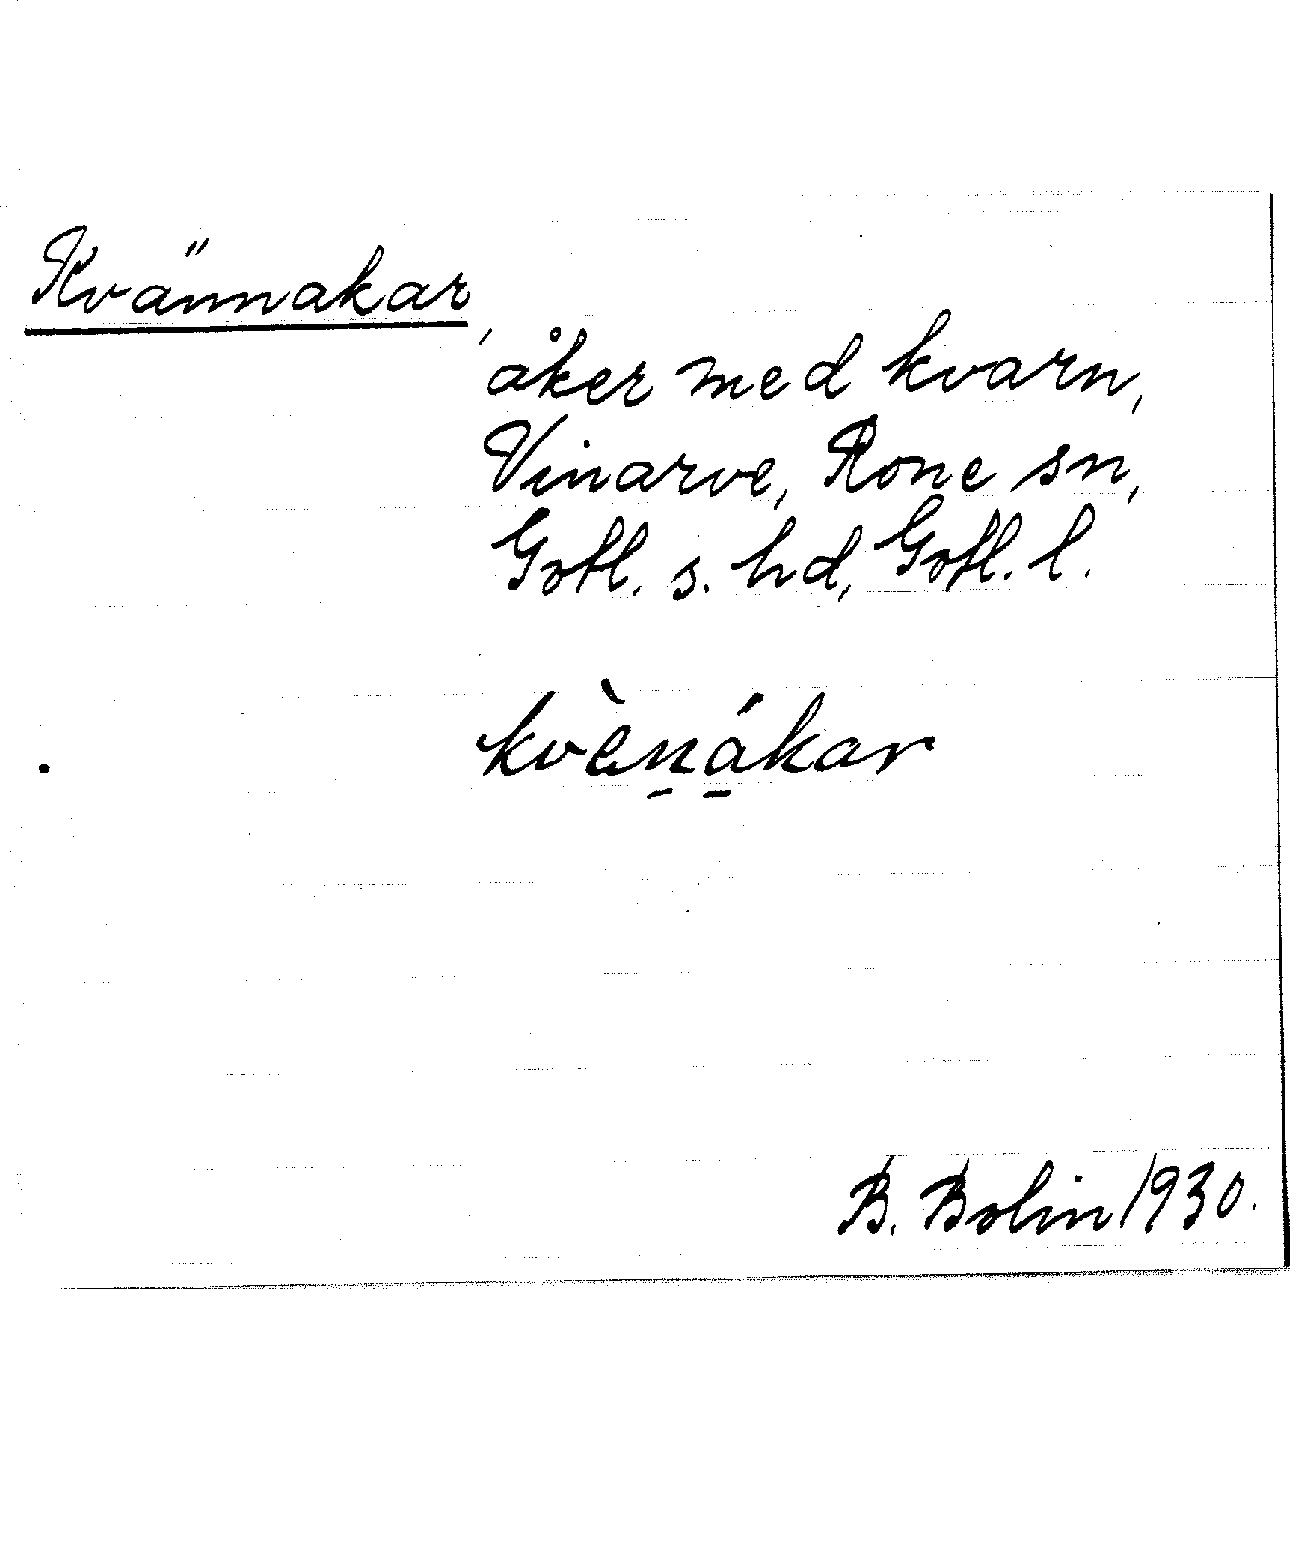 Kvännakar,
åker med kvarn,
Vinarve, Rone sn,
Gotl. s. hd, Gotl. l.
kvèn̠á̠kar
B. Bolin 1930.